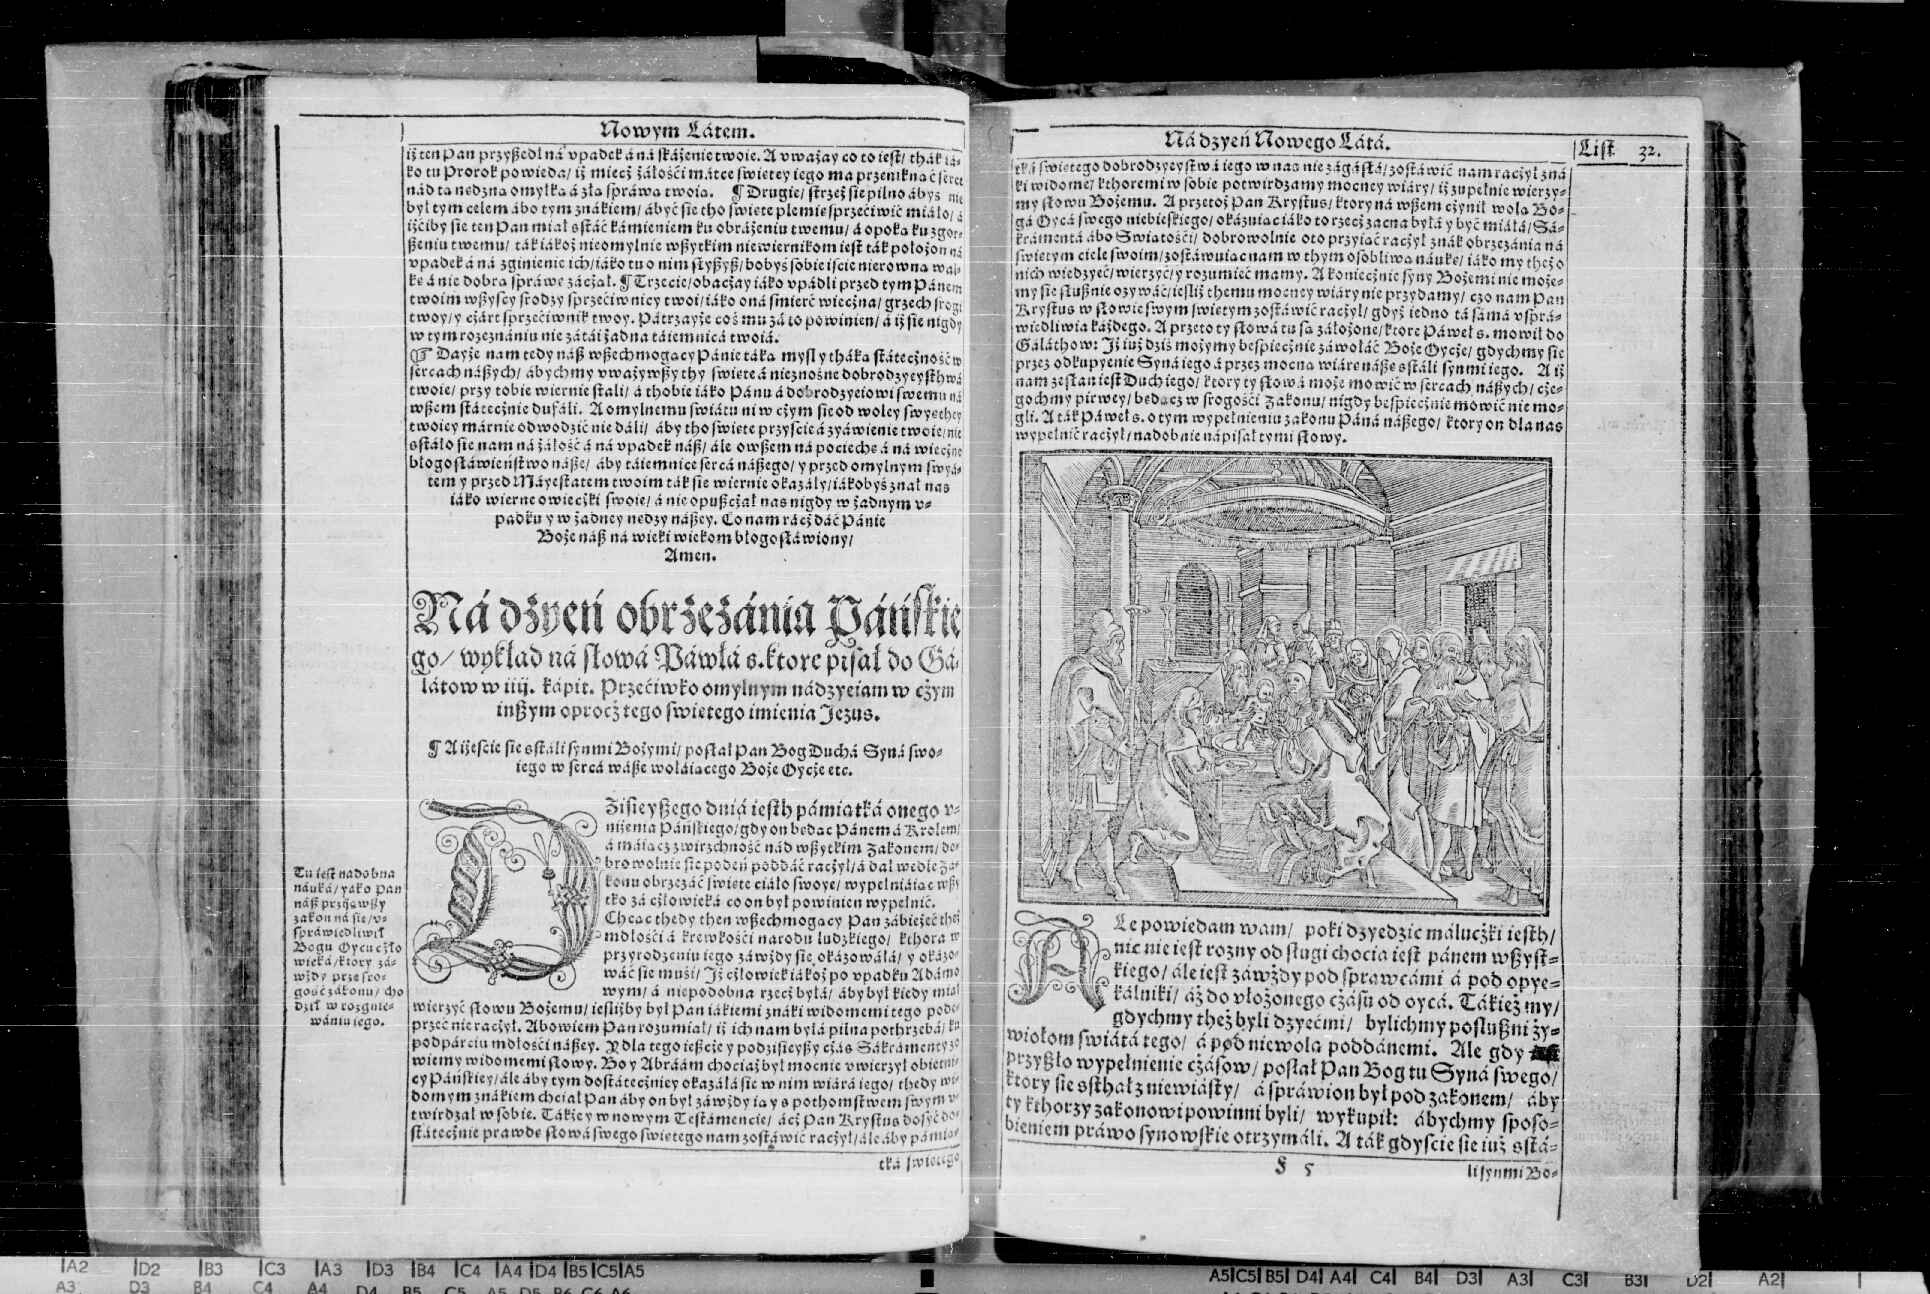 Nowym Látem.
iż ten Pan przyßedł ná vpadek á ná skáżenie twoie. A vważay co to iest/ thák iá-
ko tu Prorok powieda/ iż miecż żáłości mátce swiętey iego ma przeniknąć serce
nád tą nędzną omyłką á złą spráwą twoią. ¶ Drugie/ strzeż sie pilno ábyś nie
był tym celem ábo tym znákiem/ ábyć sie tho swięte plemię sprzećiwić miáło/ á
iżćiby sie ten Pan miał sstáć kámieniem ku obráżeniu twemu/ á opoką ku zgor-
ßeniu twemu/ ták iákoż nieomylnie wßytkim niewiernikom iest ták położon ná
vpadek á ná zginienie ich/ iáko tu o nim słyßyß/ bobyś sobie iście nierowną wal-
kę á nie dobrą spráwę zácżął. ¶ Trzecie/ obacżay iáko vpádli przed tym Pánem
twoim wßyscy srodzy sprzećiwnicy twoi/ iáko oná śmierć wiecżna/ grzech srogi
twoy/ y cżárt sprzećiwnik twoy. Pátrzayże coś mu zá to powinien/ á iż sie nigdy
w tym rozeznániu nie zátái żadna táiemnicá twoiá.
☞ Dayże nam tedy náß wßechmogący Pánie táką myśl y tháką státecżność w
sercach náßych/ ábychmy vważywßy thy święte á nieznośne dobrodzyeysthwá
twoie/ przy tobie wiernie stali/ á thobie iáko Pánu á dobrodzyeiowi swemu ná
wßem státecżnie dufáli. A omylnemu swiátu ni w cżym sie od woley swyethey
twoiey márnie odwodzić nie dáli/ áby tho święte przyście á zyáwienie twoie/ nie
sstáło sie nam ná żáłość á ná vpadek náß/ ále owßem ná pociechę á ná wiecżne
błogosłáwieństwo náße/ áby táiemnice sercá náßego/ y przed omylnym swyá-
tem y przed Máyestatem twoim ták sie wiernie okazáły/ iákobyś znał nas
iáko wierne owiecżki swoie/ á nie opußcżał nas nigdy w żadnym v-
padku y w żadney nędzy náßey. Co nam rácż dáć Pánie
Boże náß ná wieki wiekom błogosłáwiony/
Amen.
Ná dżyeń obrżeżánia Páńskie
go/ wykład ná słowá Páwłá s. ktore pisał do Gá-
látow w iiij. kápit. Przećiwko omylnym nádzyeiam w cżym
inßym oprocż tego swiętego imienia Jezus.
¶ A iżeście sie sstáli synmi Bożymi/ posłał Pan Bog Duchá Syná swo-
iego w sercá wáße wołáiącego Boże Oycże etc.
DZisieyßego dniá iesth pámiątká onego v-
niżenia Páńskiego/ gdy on będąc Pánem á Krolem/
á máiącz zwirzchność nád wßytkim Zakonem/ do-
browolnie sie podeń poddáć racżył/ á dał wedle Za-
konu obrzezáć swięte ciáło swoye/ wypełniáiąc wßy
tko zá cżłowieká co on był powinien wypełnić.
Chcąc thedy then wßechmogący Pan zábieżeć theż
mdłości á krewkości narodu ludzkiego/ kthora w
przyrodzeniu iego záwżdy sie okázowáłá/ y okázo-
wáć sie muśi/ Iż cżłowiek iákoż po vpadku Adámo
wym/ á niepodobna rzecż byłá/ áby był kiedy miał
wierzyć słowu Bożemu/ iesliżby był Pan iákiemi znáki widomemi tego pode-
przeć nie racżył. Abowiem Pan rozumiał/ iż ich nam byłá pilna pothrzebá/ ku
podpárciu mdłości náßey. Y dla tego ießcże y podzisieyßy cżás Sákramenty zo
wiemy widomemi słowy. Bo y Abráám chociaż był mocnie vwierzył obietni-
cy Páńskiey/ ále áby tym dostátecżniey okazáłá sie w nim wiárá iego/ thedy wi-
domym znákiem chciał Pan áby on był záwżdy ią y s pothomstwem swym v-
twirdzał w sobie. Tákże y w nowym Testámencie/ ácż Pan Krystus dosyć do-
státecżnie prawdę słowá swego swiętego nam zostáwić racżył/ ále áby pámią-
tká swiętego
Tu iest nadobna
náuká/ yáko Pan
náß przyiąwßy
zakon ná się/ v-
spráwiedliwił
Bogu Oycu cżło
wieká/ ktory zá-
wżdy prze sro-
gość zakonu/ cho
dził w rozgnie-
wániu iego.
Ná dzyeń Nowego Látá.
List 32.
tká swiętego dobrodzyeystwá iego w nas nie zágásłá/ zostáwić nam racżył zná
ki widome/ kthoremi w sobie potwirdzamy mocney wiáry/ iż zupełnie wierzy-
my słowu Bożemu. A przetoż Pan Krystus/ ktory ná wßem cżynił wolą Bo-
gá Oycá swego niebieskiego/ okázuiąc iáko to rzecż zacna byłá y być miáłá/ Sá-
krámentá ábo Swiątości/ dobrowolnie oto przyiąć racżył znák obrzezánia ná
swiętym ciele swoim/ zostáwuiąc nam w thym osobliwą náukę/ iáko my theż o
nich wiedzyeć/ wierzyć/ y rozumieć mamy. A koniecżnie syny Bożemi nie może-
my sie słußnie ozywáć/ iesliż themu mocney wiáry nie przydamy/ czo nam Pan
Krystus w słowie swym swiętym zostáwić racżył/ gdyż iedno tá sámá vsprá-
wiedliwia káżdego. A przeto ty słowá tu są záłożone/ ktore Páweł s. mowił do
Gáláthow: Iż iuż dziś możymy bespiecżnie záwołáć Boże Oycże/ gdychmy sie
przez odkupyenie Syná iego á przez mocną wiárę náßę sstáli synmi iego. A iż
nam zesłan iest Duch iego/ ktory ty słowá może mowić w sercach náßych/ cże-
gochmy pirwey/ będącz w srogości Zakonu/ nigdy bespiecżnie mowić nie mo-
gli. A ták Páweł s. o tym wypełnieniu zakonu Páná náßego/ ktory on dla nas
wypełnić racżył/ nadobnie nápisał tymi słowy.
ALe powiedam wam/ poki dzyedzic málucżki iesth/
nic nie iest rozny od sługi chocia iest pánem wßyst-
kiego/ ále iest záwżdy pod spráwcámi á pod opye-
kálniki/ áż do vłożonego cżásu od oycá. Tákież my/
gdychmy theż byli dzyećmi/ bylichmy poslußni ży-
wiołom swiátá tego/ á pod niewolą poddánemi. Ale gdy
przyßło wypełnienie cżásow/ posłał Pan Bog tu Syná swego/
ktory sie sstháł z niewiásty/ á spráwion był pod zakonem/ áby
ty kthorzy zakonowi powinni byli/ wykupił: ábychmy sposo-
bieniem práwo synowskie otrzymáli. A ták gdyście sie iuż sstá-
§ 5
li synmi Bo-
A2 D2 B3 C3 A3 D3 B4 C4 A4 D4 B5 C5 A5
A3 D3 B4 C4 A4 D4 B5 C5 A5 D5 B6 C6 A6
A5 C5 B5 D4 A4 C4 B4 D3 A3 C3 B3 D2 A2